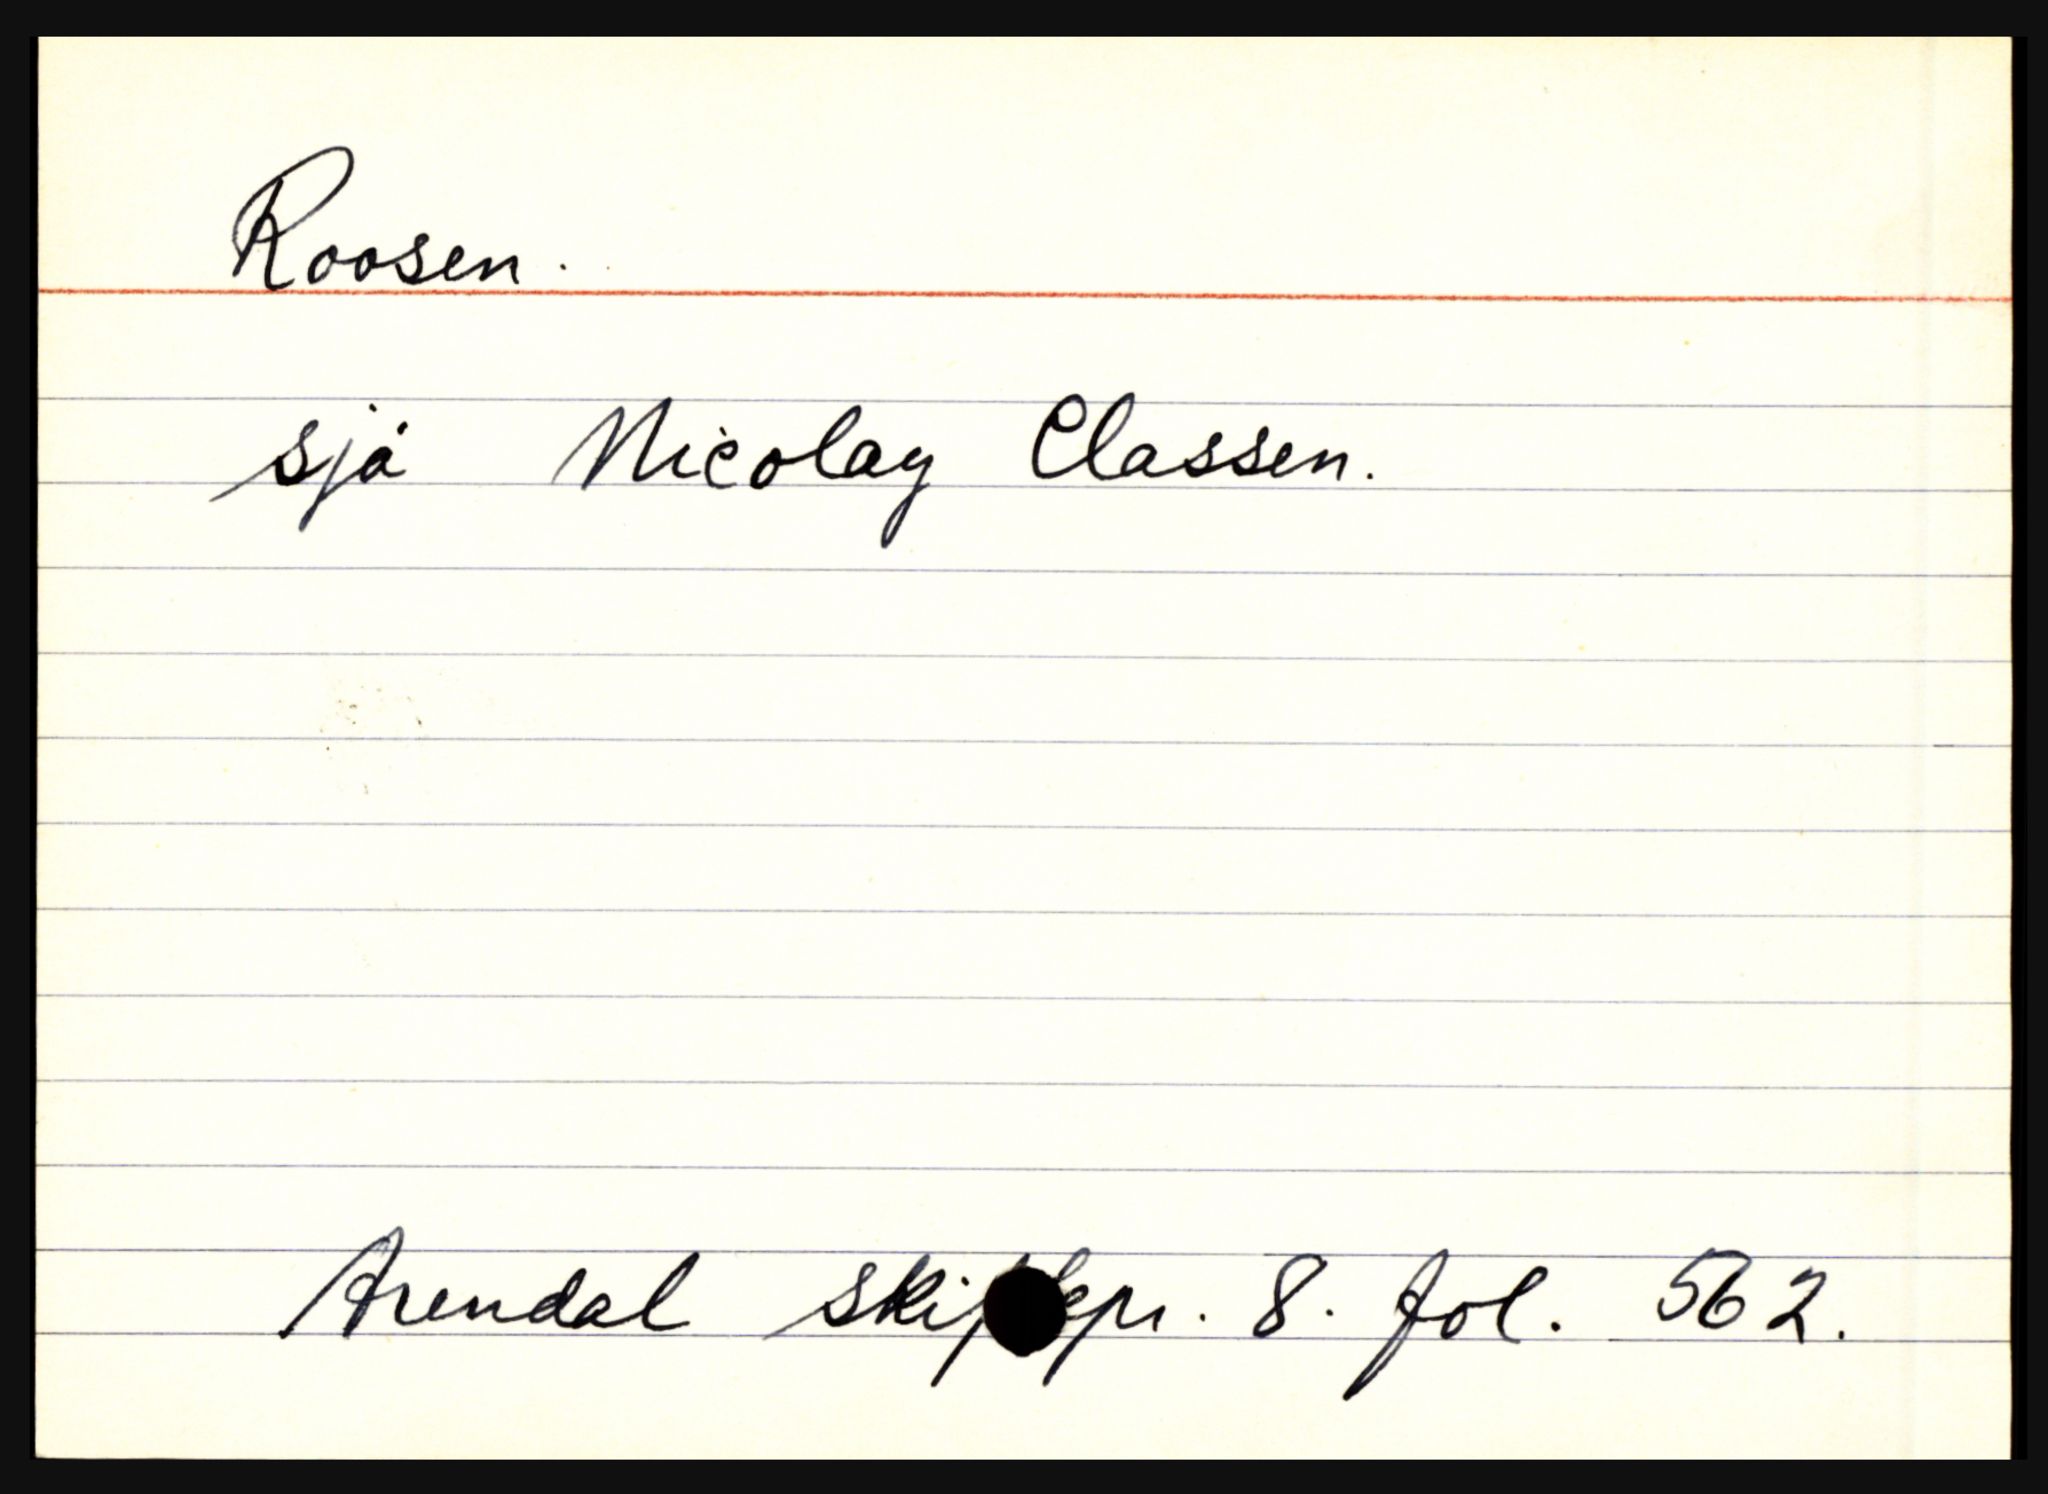 Roosen.
sjå Nicolay Classen.
Arendal 8. fol. 562.